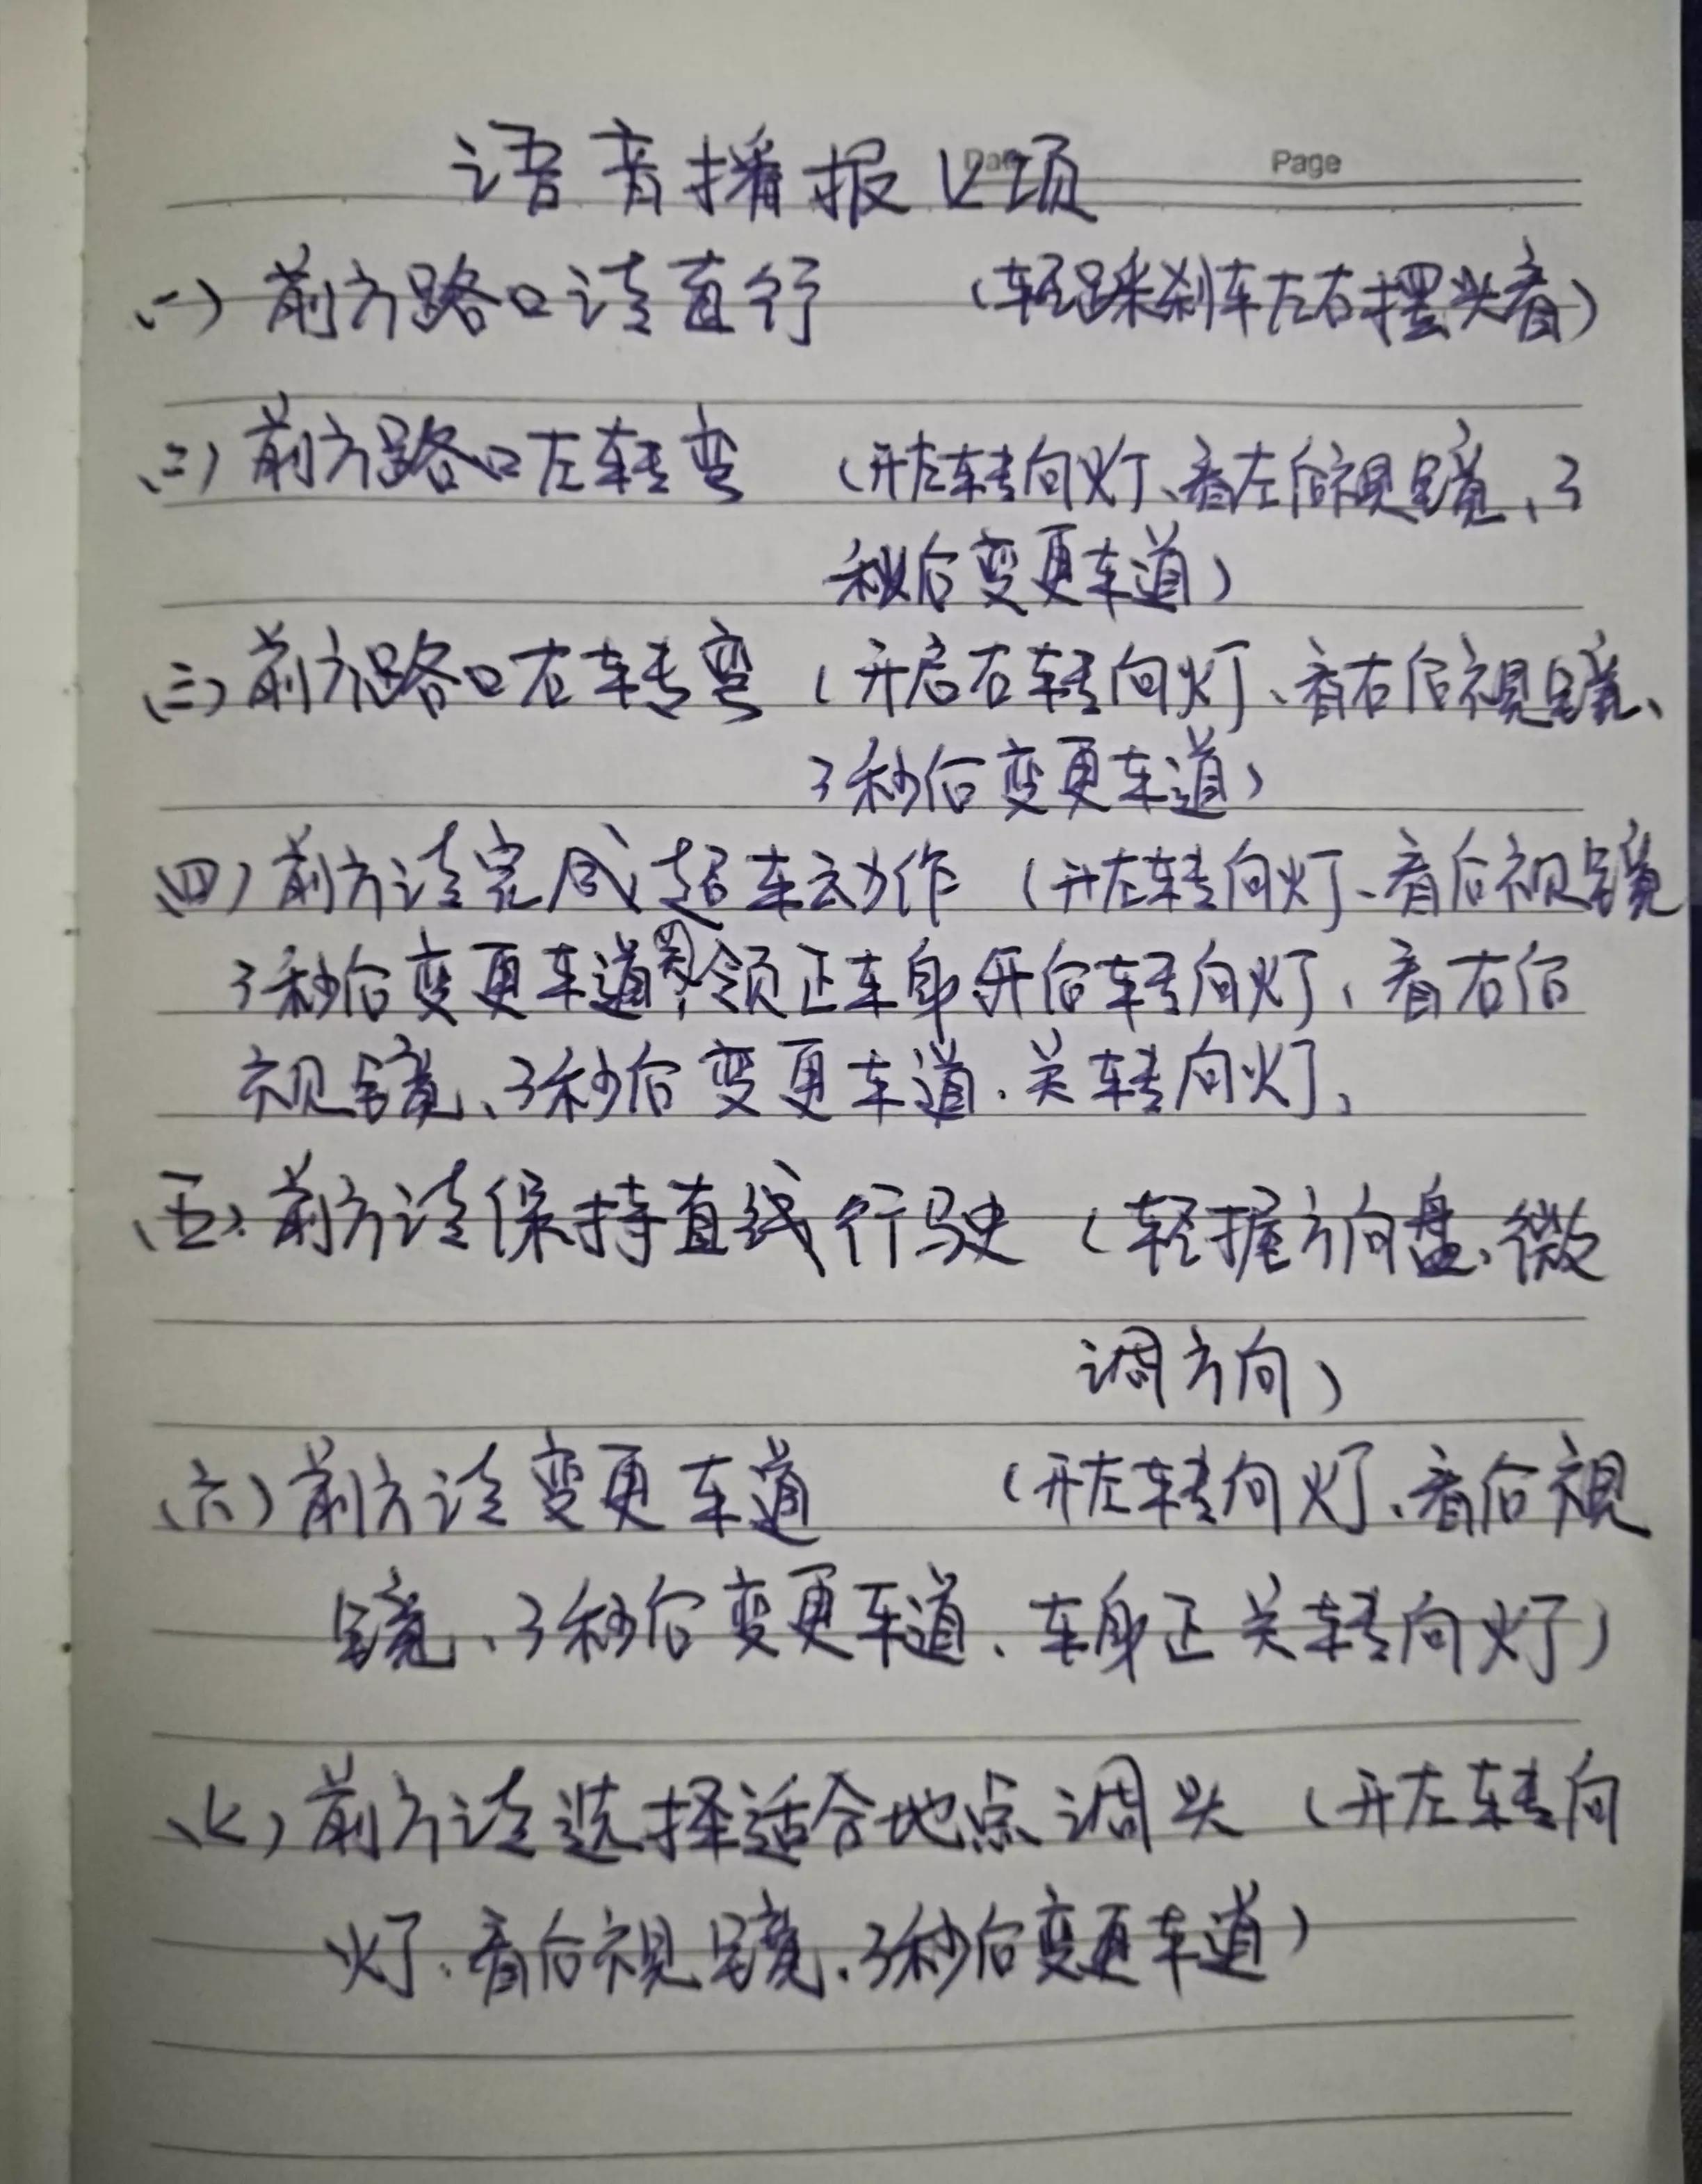 Page
语音播报七项
(一)前方路口请直行 (轻踩刹车左右摆头看)
(二)前方路口左转弯 (开左转向灯、看左后视镜、3
秒后变更车道)
(三)前方路口右转弯 (开启右转向灯、看右后视镜、
3秒后变更车道)
(四)前方请完成超车动作 (开左转向灯、看后视镜
3秒后变更车道,领正车身,开右转向灯、看右后
视镜、3秒后变更车道.关转向灯、
(五)前方请保持直线行驶 (轻握方向盘、微
调方向)
(六)前方请变更车道 (开左转向灯、看后视
镜、3秒后变更车道、车身正关转向灯)
(七)前方请选择适合地点调头 (开左转向
灯、看后视镜、3秒后变更车道)